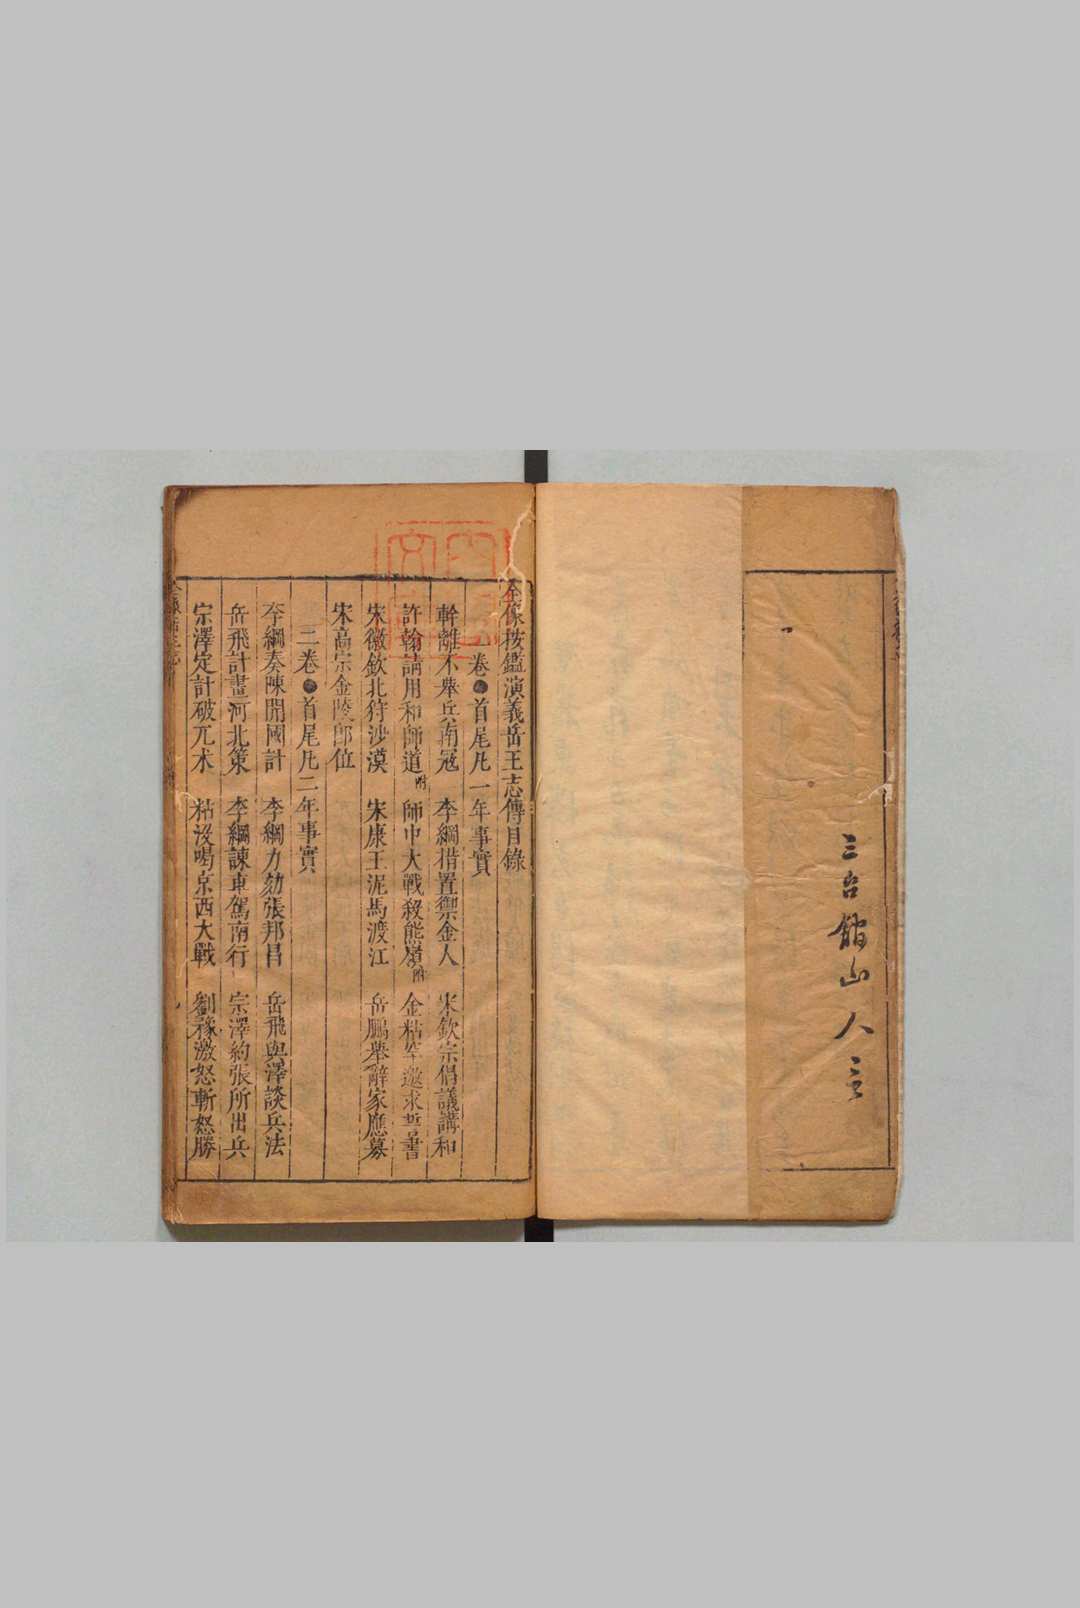 三台館山人言
全像按鑑演義岳王志傳目錄
一卷●首尾凡一年事實
斡離不舉兵南冦 李綱措置禦金人 宋欽宗倡議講和
許翰請用和師道附 師中大戰殺熊嶺附 金粘罕邀求誓書
宋徽欽北狩沙漠 宋康王泥馬渡江 岳鵬舉辭家應募
宋高宗金陵即位
二卷●首尾凡二年事實
李綱奏陳開國計 李綱力劾張邦昌 岳飛與澤談兵法
岳飛計畫河北策 李綱諫車駕南行 宗澤約張所出兵
宗澤定計破兀朮 粘沒喝京西大戰 劉豫激怒斬怒勝